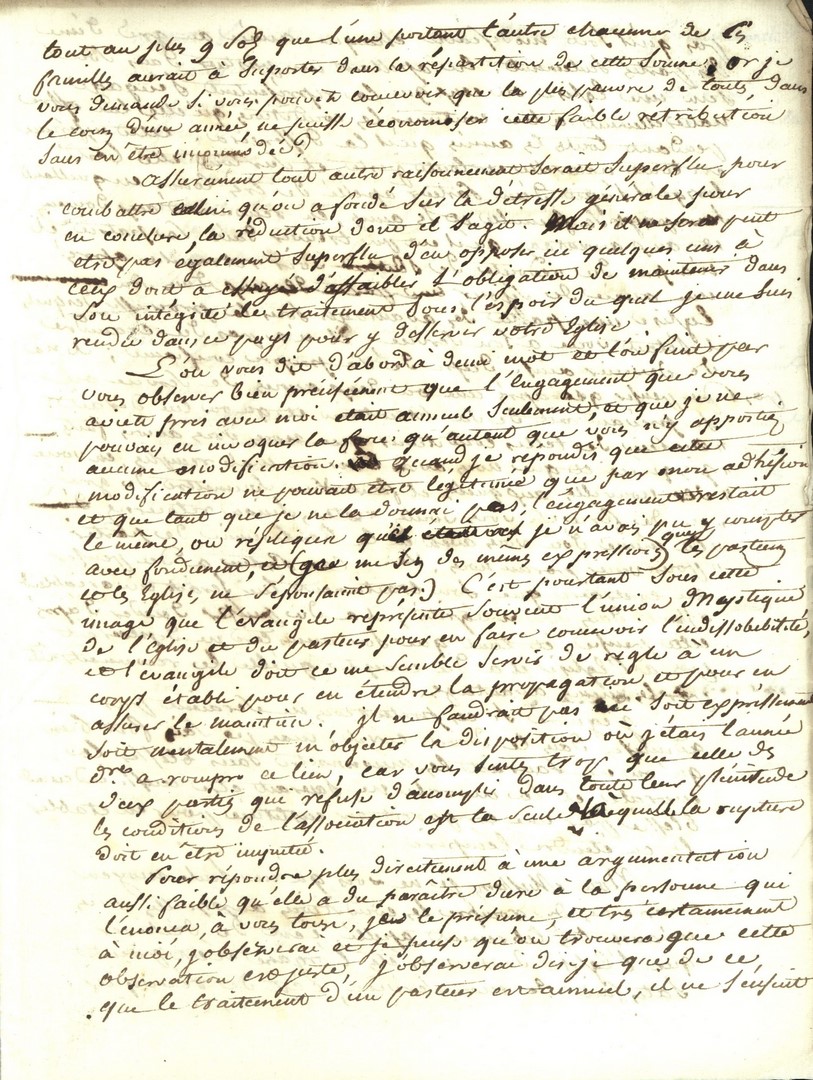 tout au plus 9 sols que l'une portant l'autre chacune de ces
familles aurait à supporter dans la répartition de cette somme, or je
vous demande si vous pouvez concevoir que la plus pauvre de toutes, dans
le cours d'une année, ne puisse économiser cette faible rétribution
sans en être incommodée?
Assurément tout autre raisonnement serait superflu pour
combattre celui qu'on a fondé sur la détresse générale pour
en conclure la réduction dont il s'agit. Mais il ne sera peut
etre pas également superflu d'en opposer ici quelques uns à
ceux dont a essayé d'affaiblir l'obligation de maintenir dans
son intégrité le traitement sous l'espoir du quel je me suis
rendu dans ce pays pour y desservir votre Eglise
L'on vous dit d'abord à demi mot et l'on finit par
vous observer bien précisément que l'engagement que vous
aviez pris avec moi était annuel seulement, et que je ne
pouvais en invoquer la force qu'autant que vous n'y apportiez
aucune modification. Quand je répondis que cette
modification ne pouvait etre légitimée que par mon adhésion
et que tant que je ne la donnai pas, l'engagement restait
le même, on répliqua je n'avais pu y compter
avec fondement, et (que me des mêmes expressions) que les pasteurs
et les Eglises, ne s'épousaient pas.) C'est pourtant sous cette
image que l'évangile représente souvent l'union Mystique
de l'église et du pasteur pour en faire concevoir l'indissolubilité,
et l'évangile doit ce me semble servir de regle à un
corps établi pour en étendre la propagation, et pour en
assurer le maintien. jl ne faudrait pas soit expressément
soit mentalement m'objecter la disposition où j'étais l'année
dre a rompre ce lien, car vous sentez trop que celle des
deux parties qui refuse d'accomplir dans toute leur plénitude
les conditions de l'association est la seule à laquelle la rupture
doit en être imputée.
Pour répondre plus directement à une argumentation
aussi faible qu'elle a du paraître dure à la personne qui
l'énonça, à vous tous, je le présume, et très certainement
à moi, j'observerai et je pense qu'on trouvera que cette
observation est juste, j'observerai dis-je que de ce
que le traitement d'un pasteur est annuel, il ne s'ensuit